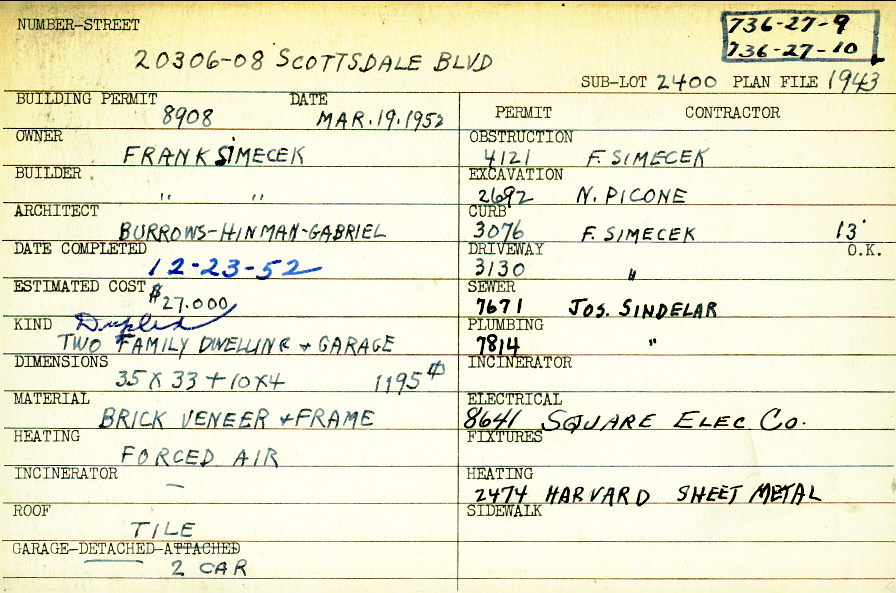 NUMBER-STREET
736-27-9
736-27-10
20306-08 SCOTTSDALE BLVD
SUB-LOT 2400 PLAN FILE 1943
BUILDING PERMIT DATE
8908 MAR.19.1952
OWNER
FRANK SIMECEK
BUILDER
" "
ARCHITECT
BURROWS-HINMAN-GABRIEL
DATE COMPLETED
12-23-52
ESTIMATED COST $27.000
KIND Duplex
TWO FAMILY DWELLING + GARAGE
DIMENSIONS
35 X 33 + 10X4 1195 ⌗
MATERIAL
BRICK VENEER + FRAME
HEATING
FORCED AIR
INCINERATOR
—
ROOF
TILE
GARAGE-DETACHED-ATTACHED
2 CAR
PERMIT CONTRACTOR
OBSTRUCTION
4121 F. SIMECEK
EXCAVATION
2692 N. PICONE
CURB
3076 F. SIMECEK 13'
DRIVEWAY O.K.
3130 "
SEWER
7671 JOS. SINDELAR
PLUMBING
7814 "
INCINERATOR
ELECTRICAL
8641 SQUARE ELEC CO.
FIXTURES
HEATING
2474 HARVARD SHEET METAL
SIDEWALK